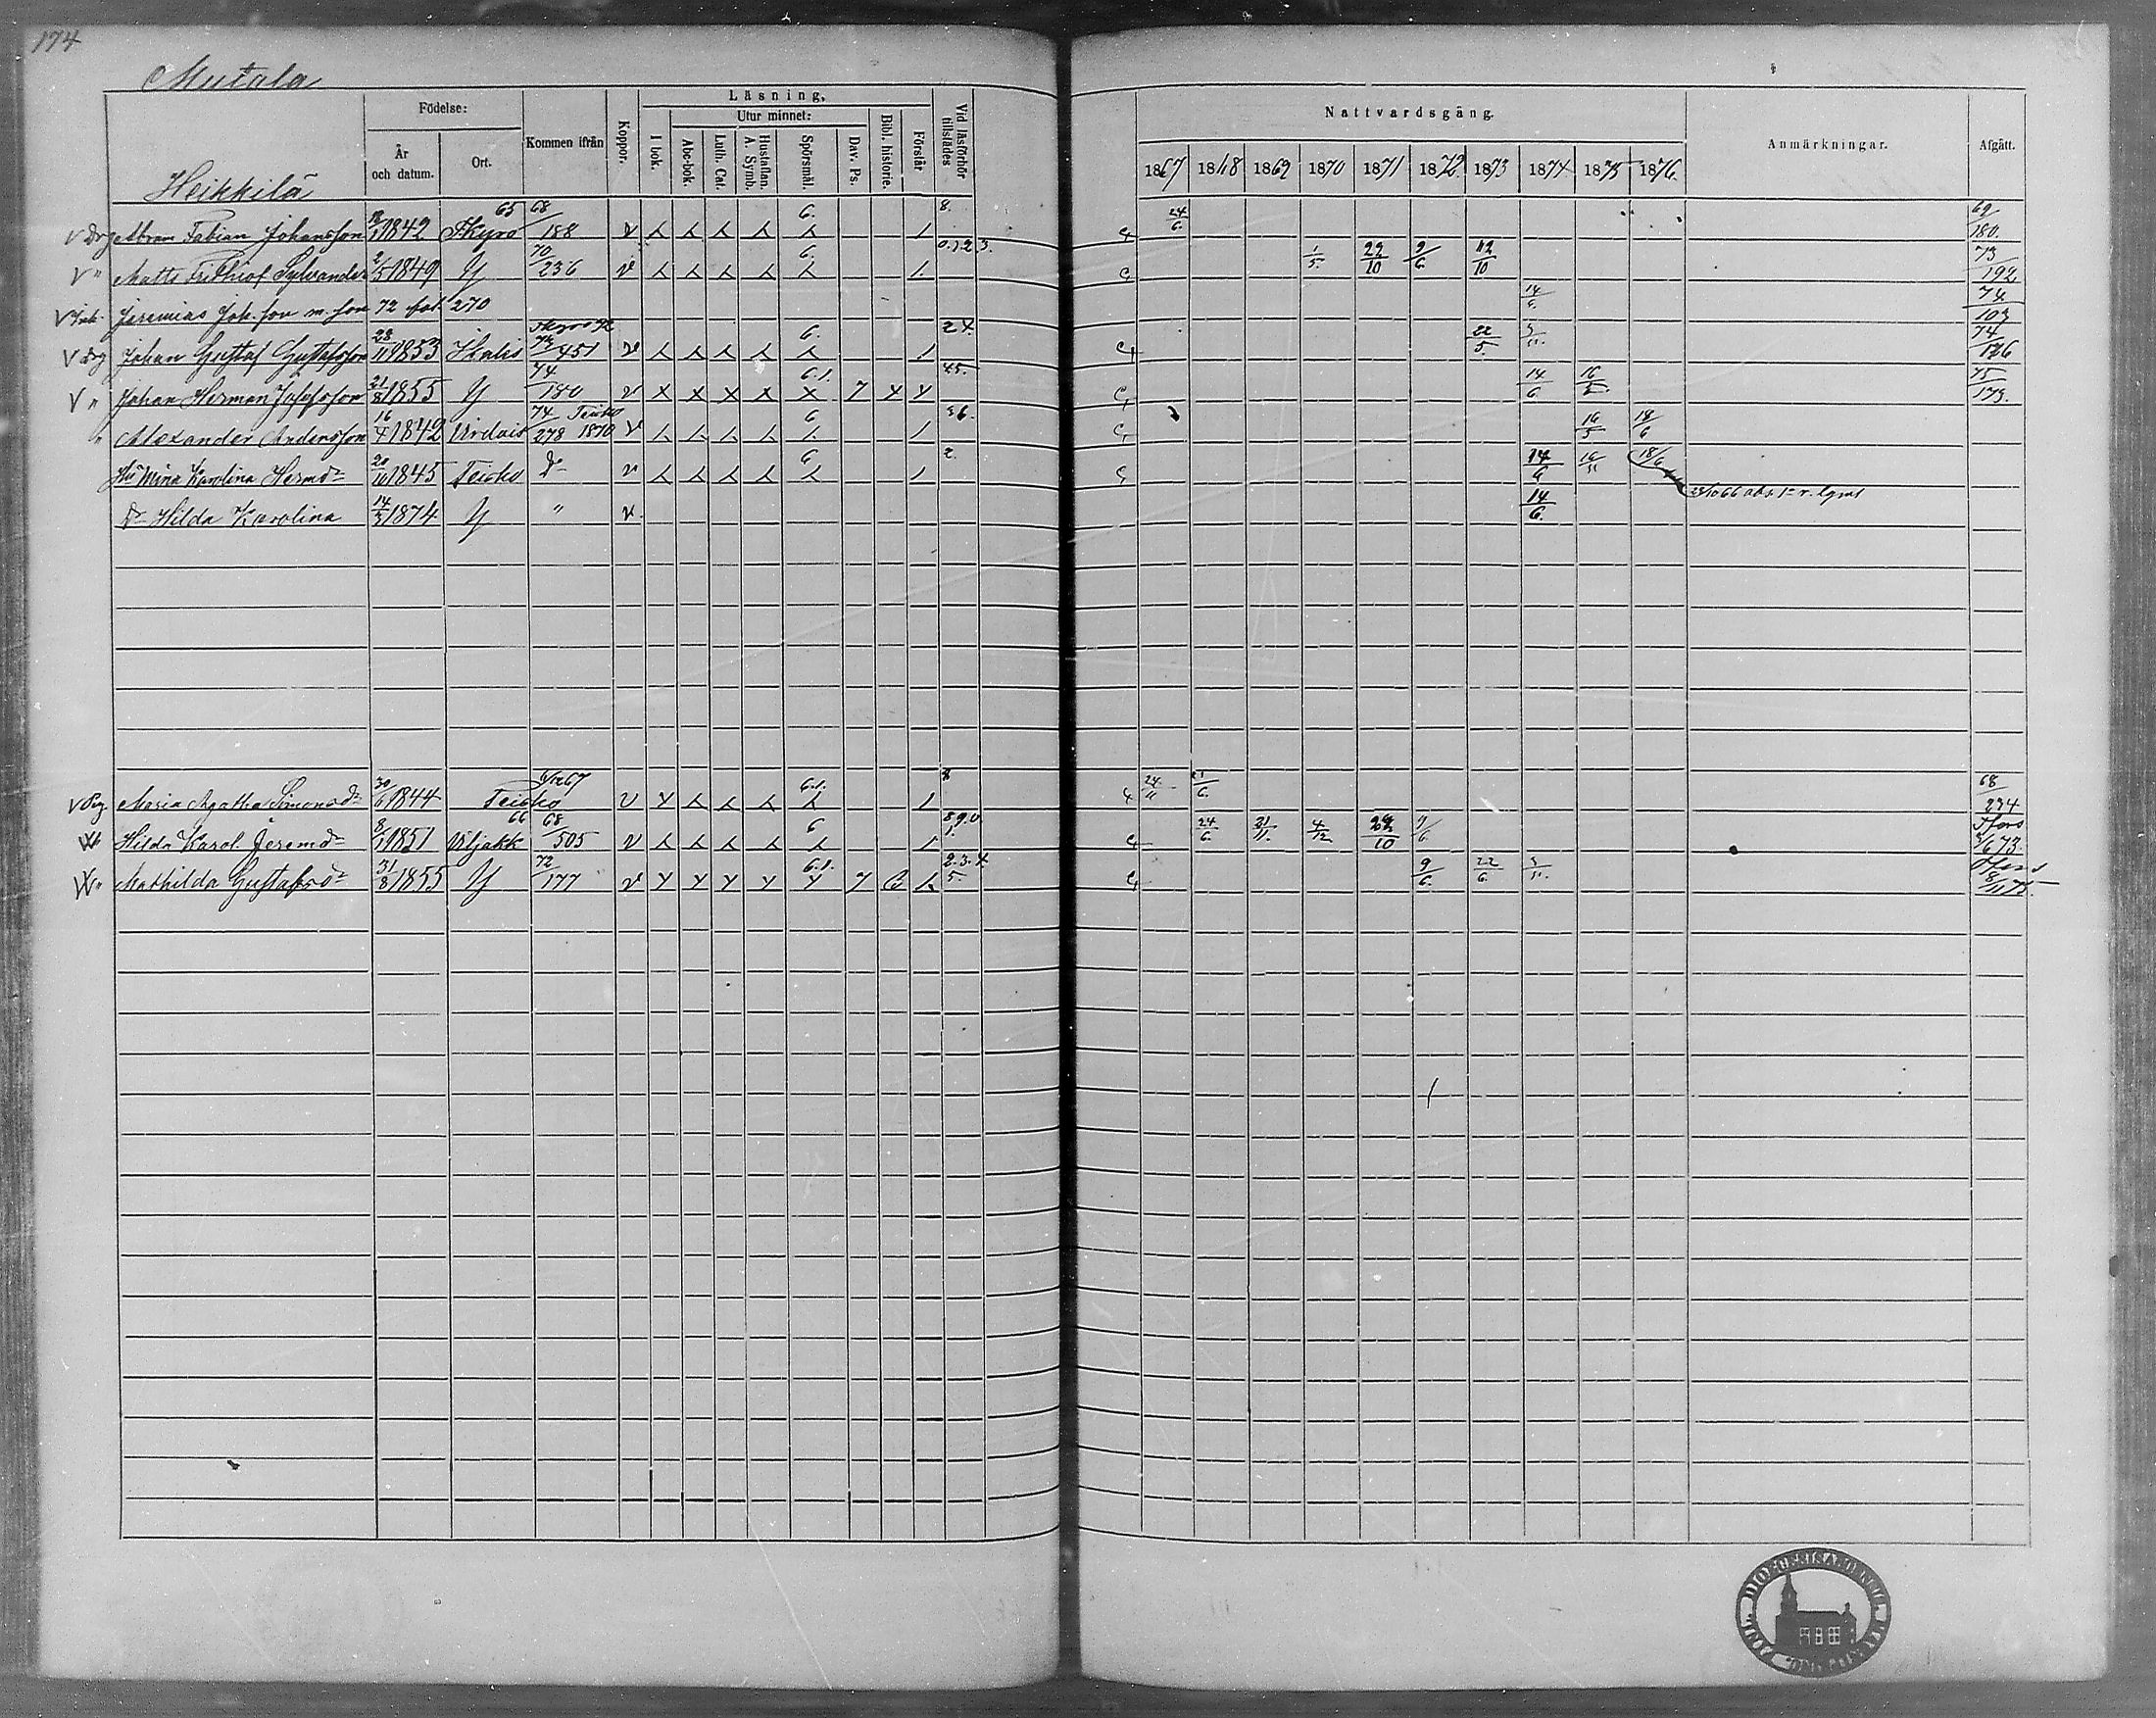 174
Mutala
Födelse: Kommen ifrån Koppor. Läsning. Vid läsförhör tillstädes Nattvardsgång. Anmärkningar. Afgått.
År och datum. Ort. I bok. Utur minnet: Bibl. historie. Förstår
Abc-bok. Luth. Cat. Hustaflan. A. Symb. Spörsmål. Dav. Ps.
1867 1868 1869 1870 1871 1872 1873 1874 1875 1876
Heikkilä
V Drg Abram Fabian Johansson 1842 Kyro 65 68/188 v 6. 8. 24/6. 69/180.
V " Matts Frithiof Sylvander 2/5 1849 Y 70/236 v 6. 0.1.2.3. 1/5. 22/10 9/6 12/10 73/192
V Inh. Jeremias Joh. son m. son 72 pag 270 14/6. 74/103
V Drg Johan Gustaf Gustafsson 28/11 1853 Ikalis 72/451 v 6. 24. 22/5. 74/126
V " Johan Herman Josefsson 21/8 1855 Y 74/180 v 6.1. 7 45. 14/6 16/5 75/173.
" Alexander Andersson 16/4 1842 Virdois 74/278 Teisko 1870 v 6 56. 16/5 18/6
Hu Mina Karolina Hermdr 20/10 1845 Teisko Do v 6 2. 14/6 16/5 18/6 23/10 66
Dr Hilda Karolina 14/3 1874 Y " v 14/6.
V Pig. Maria Agatha Simonsdr 30/6 1844 Teisko 67 v 6.1. 8 24/11 21/6. 68/234
Hilda Karol. Jeremdr 8/1 1851 Viljakk 66 68/505 v 6 8.9.0. 1. 24/6. 31/11. 4/12 22/10 73.
" Mathilda Gustafsdr 31/8 1855 Y 72/177 v 6.1. 7 2.3.4. 5. 9/6. 22/6. 8/11 75.